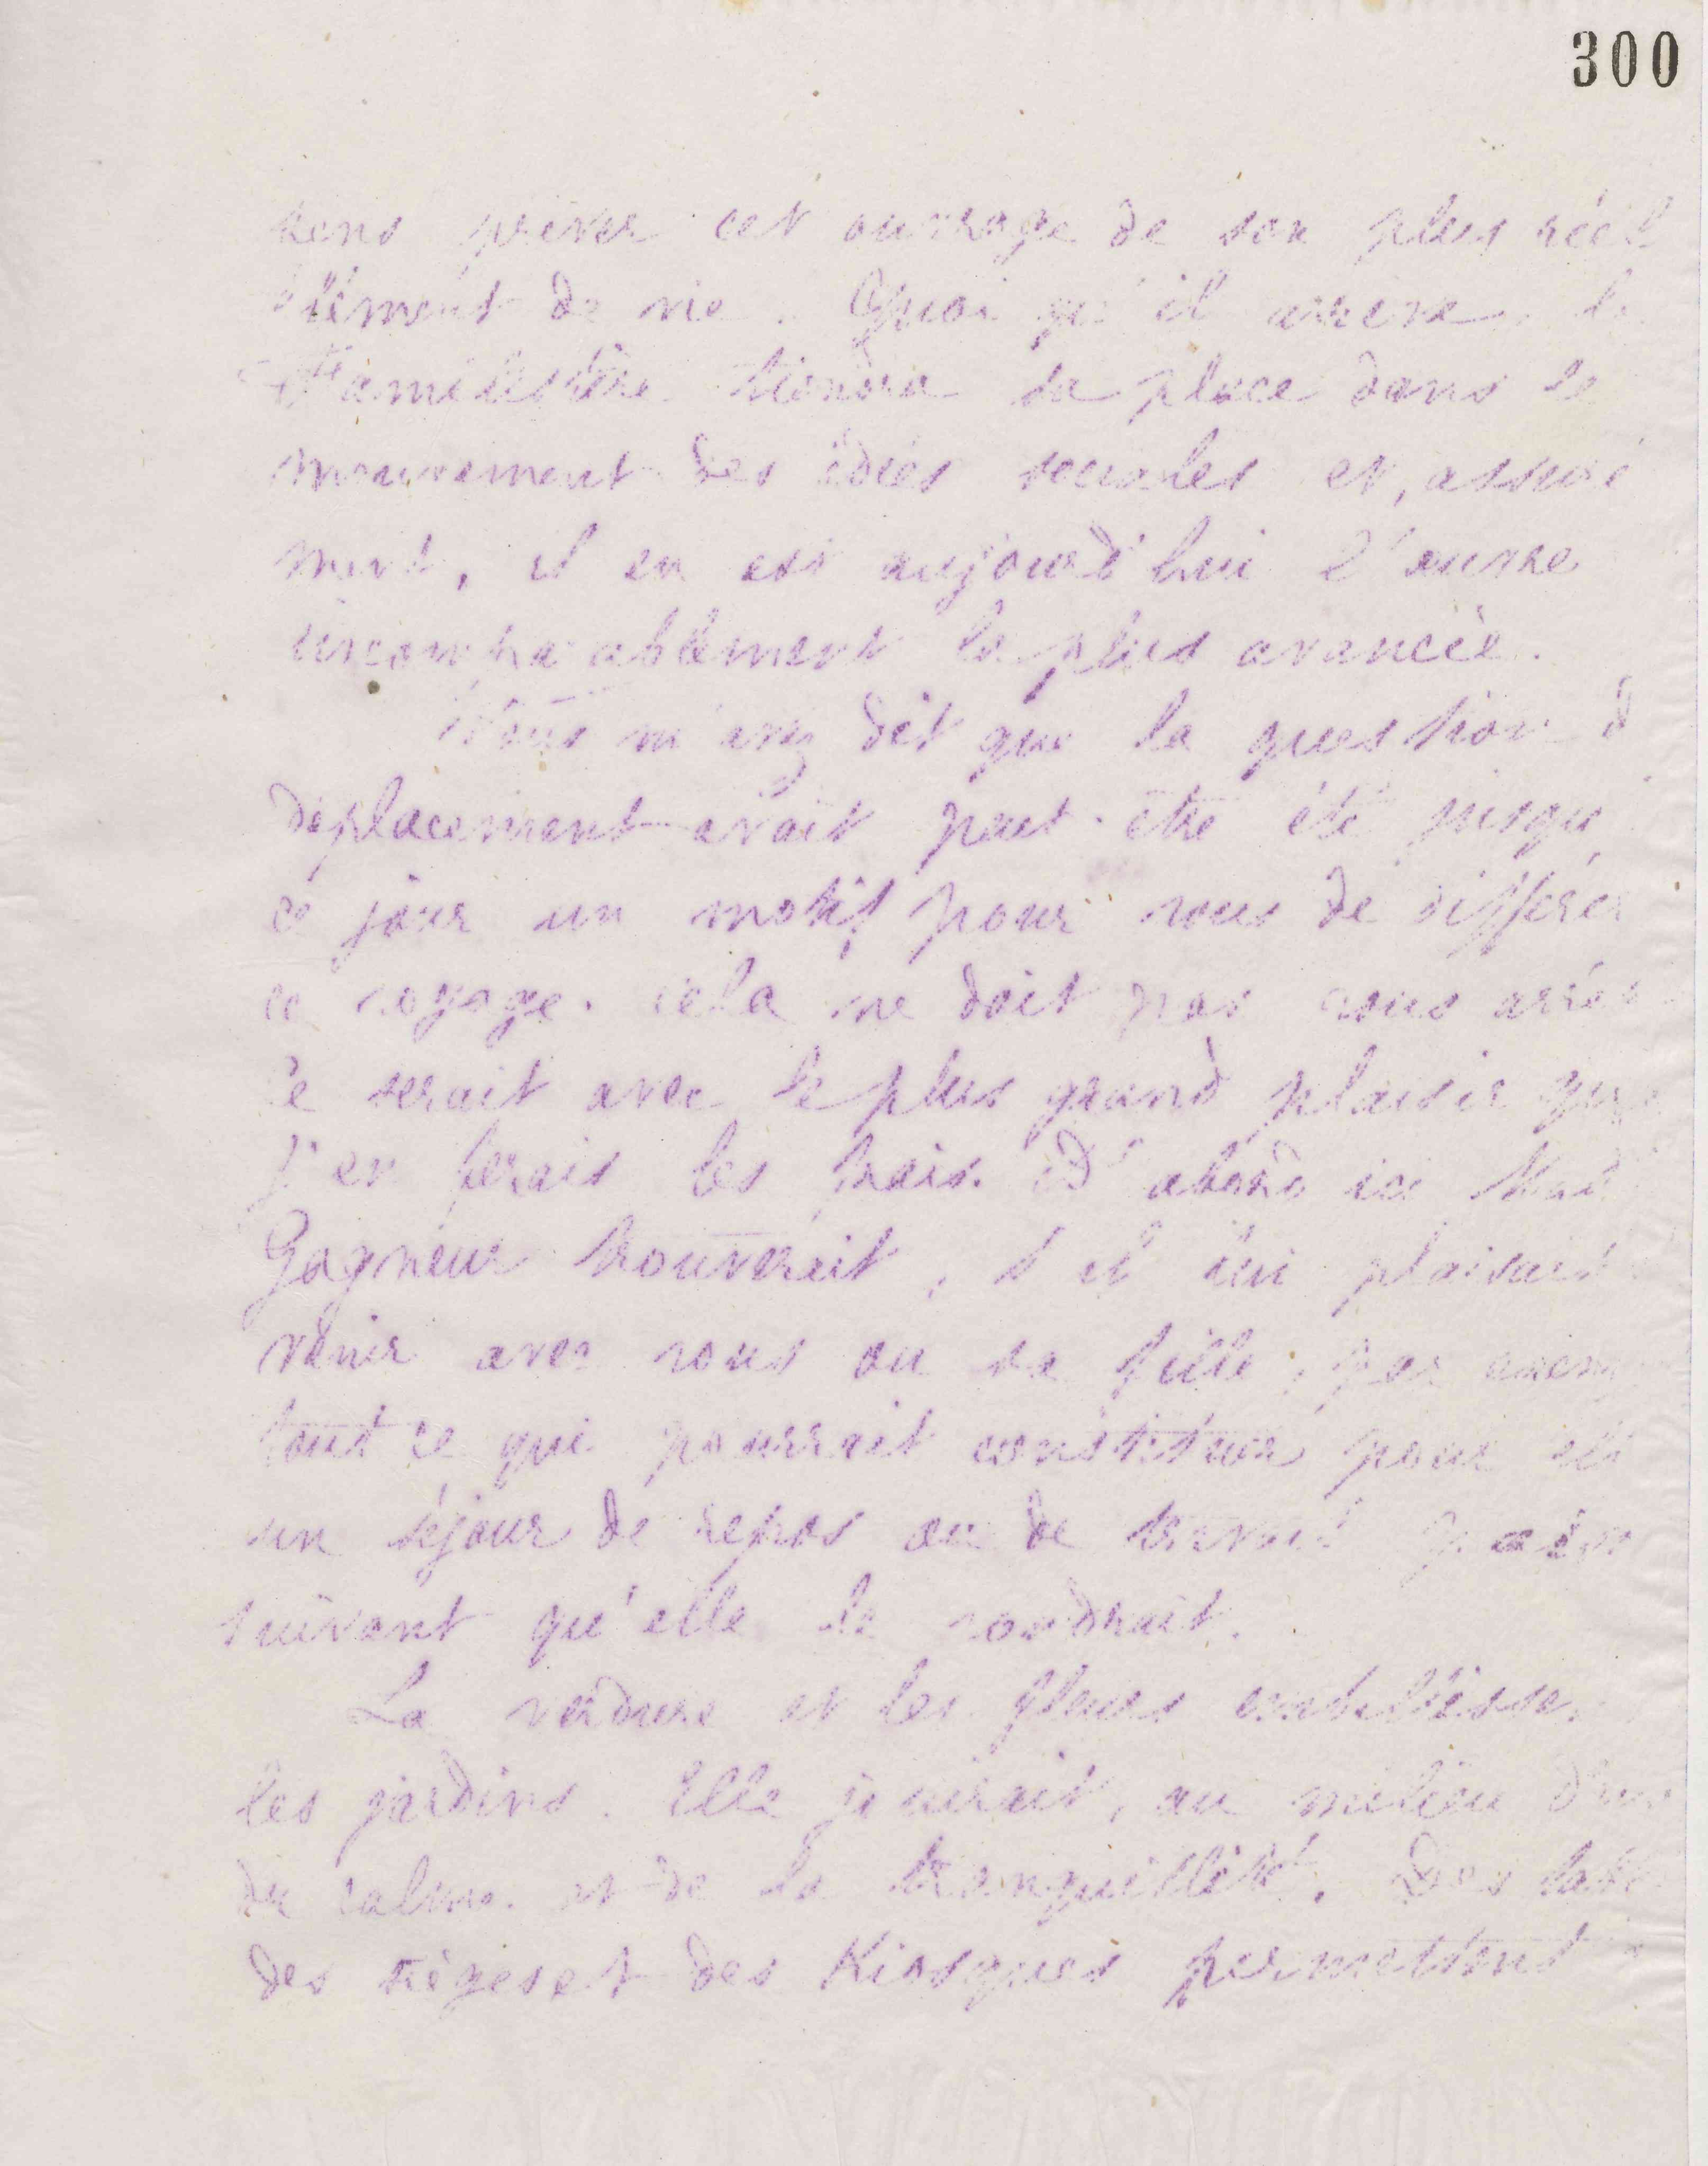 300
sens priver cet ouvrage de son plus réel
élément de vie. Quoi qu'il arrive, le
Familistère tiendra sa place dans le
mouvement des idées sociales et, assuré
ment, il en est aujourd'hui l'œuvre
incomparablement la plus avancée.
Vous m'avez dit que la question d
déplacement avait peut-être été jusqu'
ce jour un motif pour vous de différer
ce voyage. cela ne doit pas vous arrê
Ce serait avec le plus grand plaisir que
j'en ferais les frais. D'abord ici Mad
Gagneur trouverait, s'il lui plaisait
venir avec vous ou sa fille, par exemp
tout ce qui pourrait constituer pour elle
un séjour de repos ou de travail
suivant qu'elle le voudrait.
La verdure et les fleurs embellisse
les jardins. Elle jouirait, au milieu d'eux
du calme et de la tranquillité. Des
des sièges et des Kiosques permettent